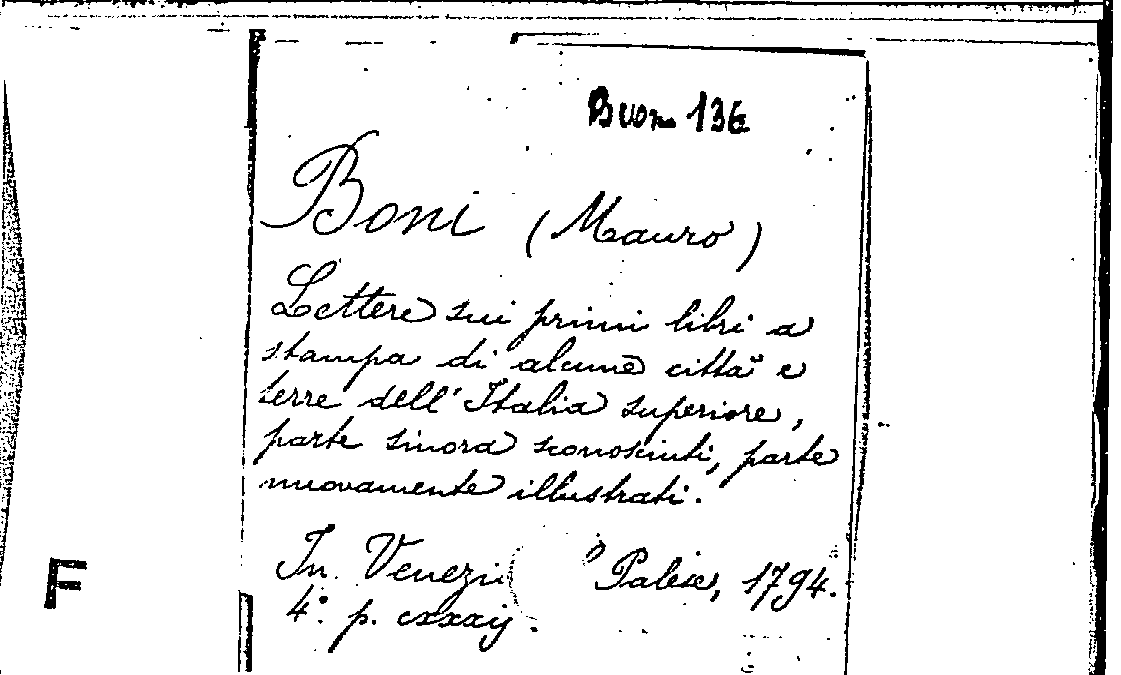 Buon. 136
Boni (Mauro)
Lettere sui primi libri a
stampa di alcune città e
terre dell'Italia superiore,
parte sinora sconosciuti, parte
nuovamente illustrati.
In Venezi Palese, 1794.
4.° p. cxxxij.
F